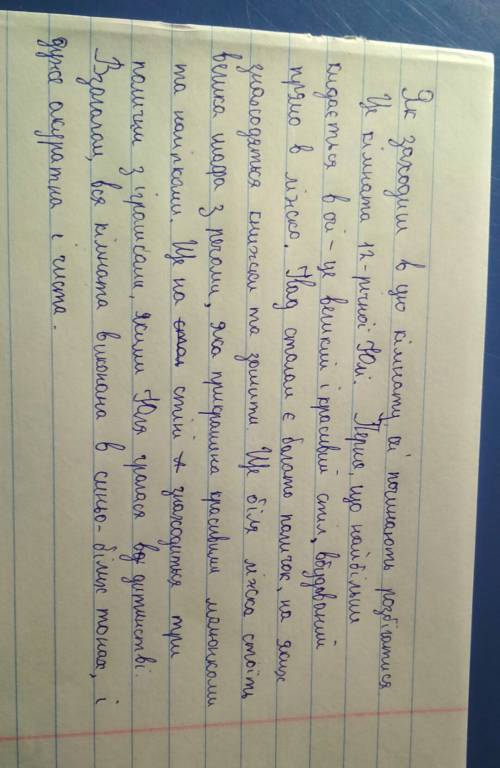 Як заходиш в цю кімнату, очі починають розбігатися.
Це кімната 12-річної Юлі. Перше, що найбільше
кидається в очі - це великий і красивий стіл, вбудований
прямо в ліжко. Над столом є багато поличок, на яких
знаходяться книжки та зошити. Ще біля ліжка стоїть
велика шафа з речами, яка прикрашена красивими малюнками
та наліпками. Ще на стіні знаходиться три
полички з іграшками, якими Юля гралася в дитинстві.
Взагалом, вся кімната виконана в синьо-білих тонах, і
дуже акуратна і чиста.